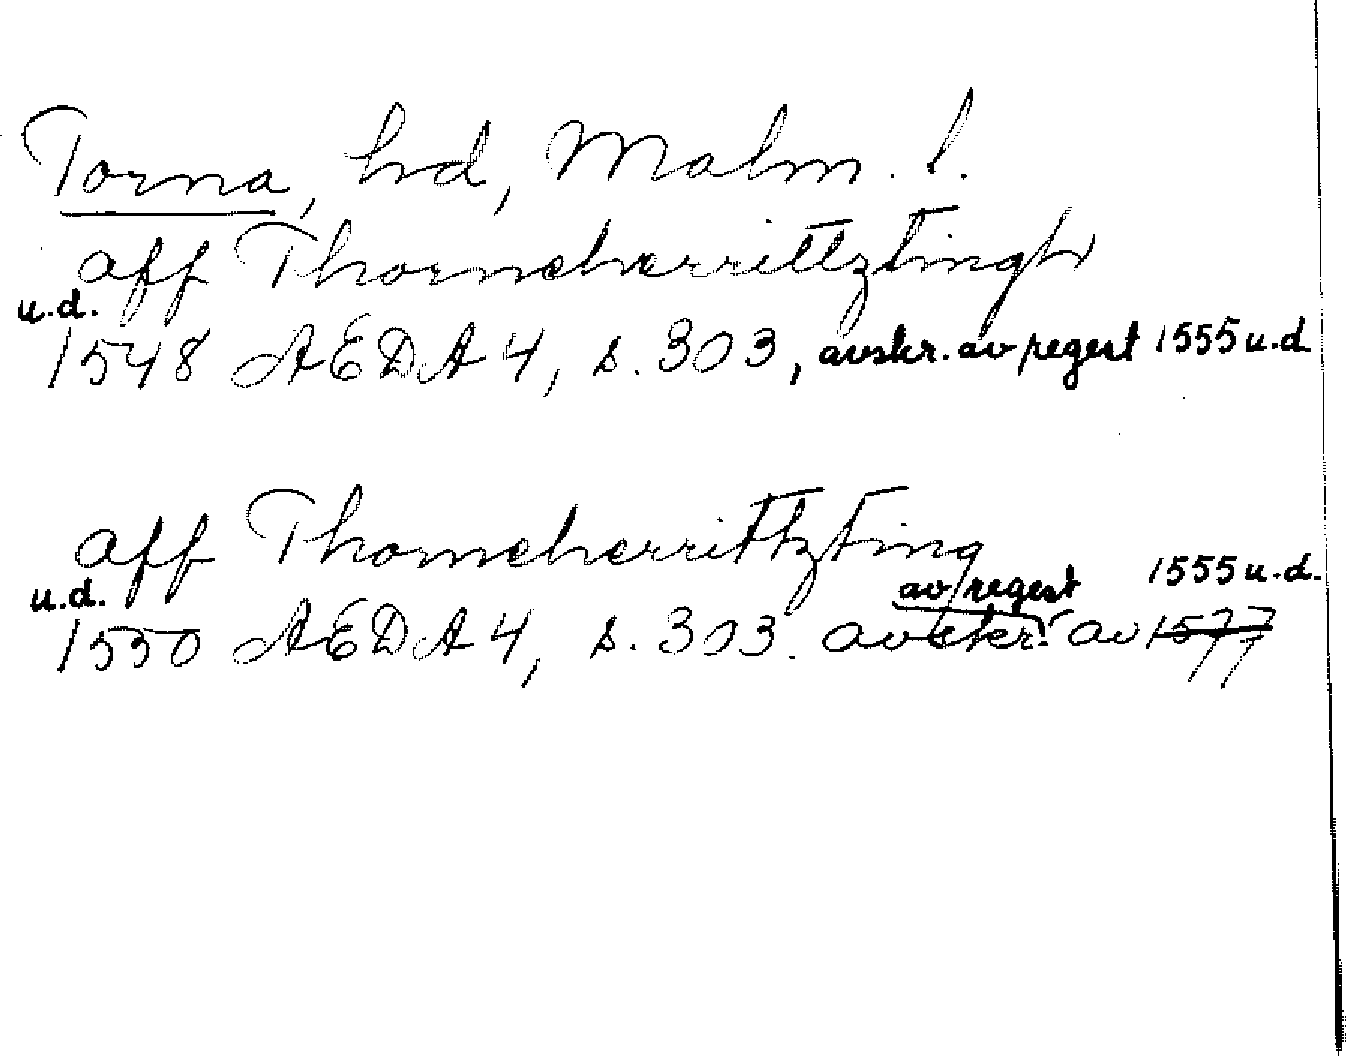 Torna, hd, Malm. l.
aff Thorneherrittztingh
u.d.
1548 AEDA 4, s. 303, avskr. av regest 1555 u.d.
aff Thorneherrittzting
u.d. av regest 1555 u.d.
1550 AEDA 4, s. 303. avskr. av 1577